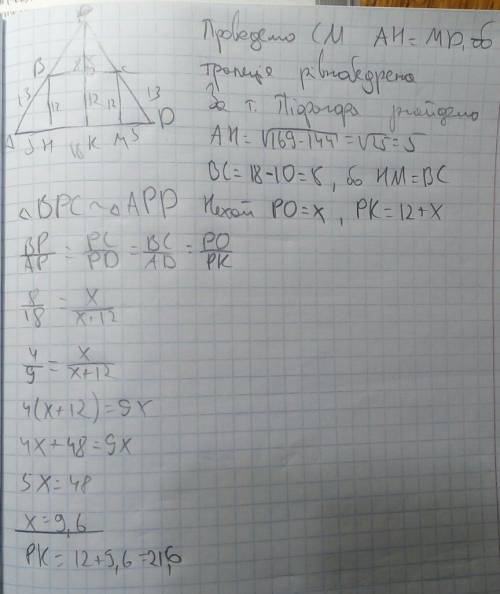 P
B 8 C
13 12 12 12 13
A 5 H 18 K M 5 D
Проведемо CM AH = MD, бо
трапеція рівнобедрена
За т. Піфагора знайдемо
AH = √169-144 = √25 = 5
BC = 18-10 = 8, бо HM = BC
△BPC ~ △APD Нехай PO = x, PK = 12+x
BP/AP = PC/PD = BC/AD = PO/PK
8/18 = x/x+12
4/9 = x/x+12
4(x+12) = 9x
4x+48 = 9x
5x = 48
x = 9,6
PK = 12+9,6 = 21,6